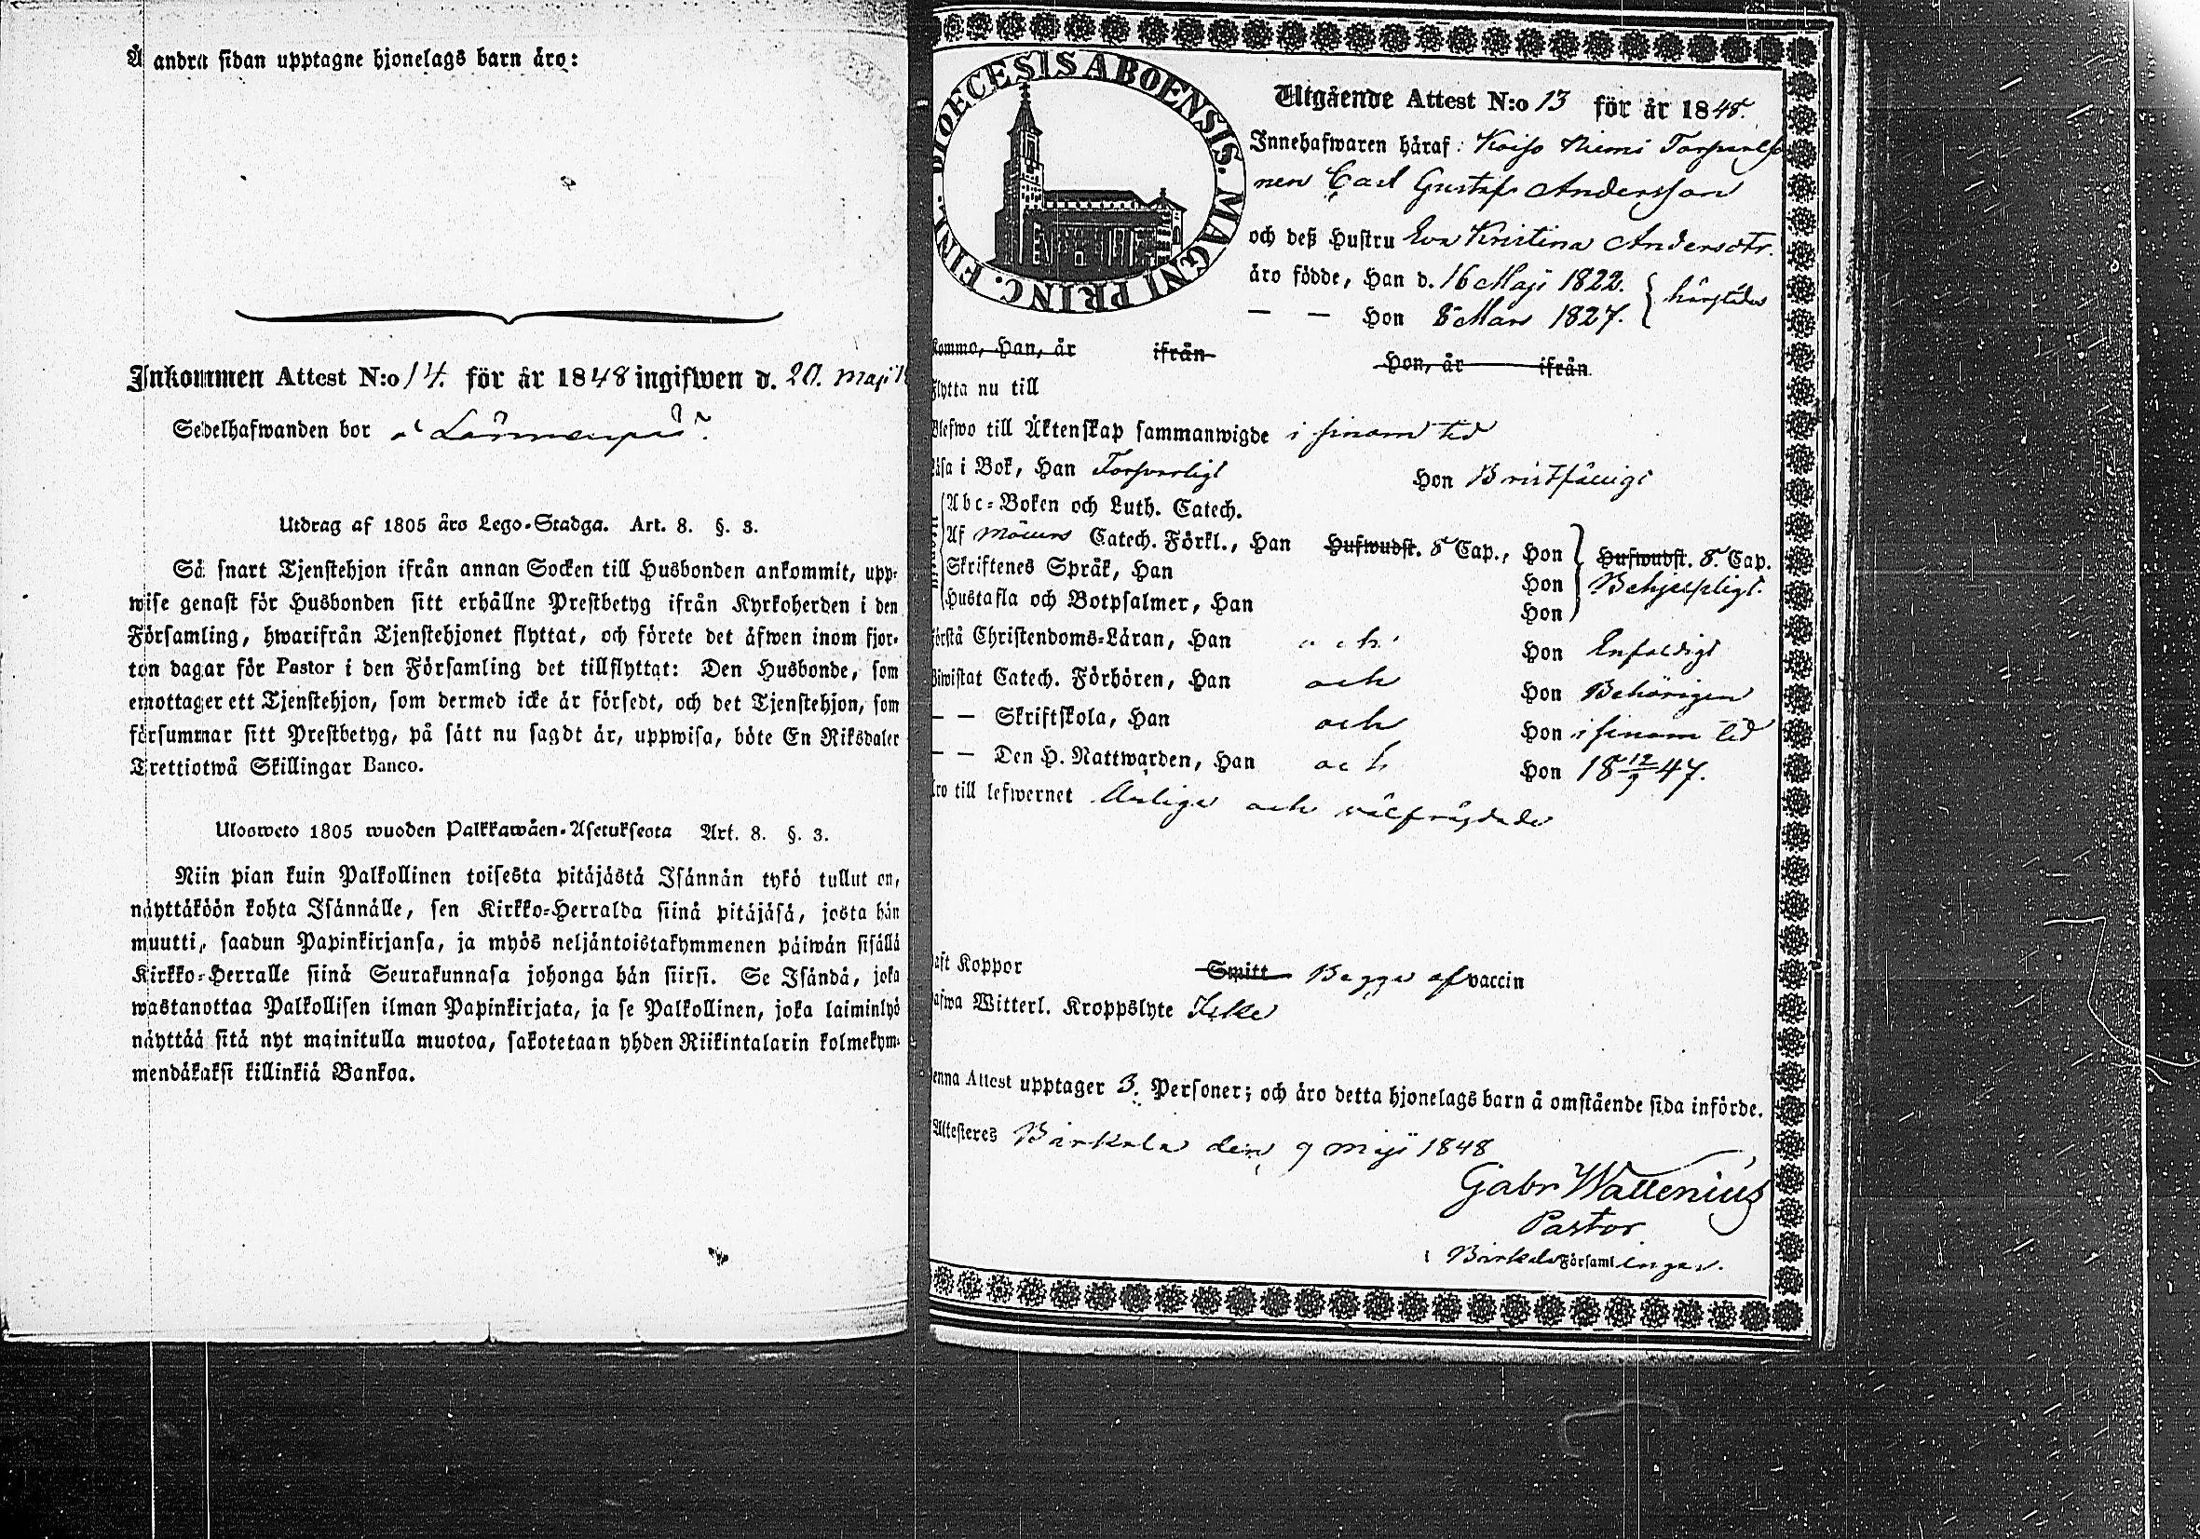 Å andra sidan upptagne hjonelags barn äro:
Inkommen Attest N:o 14. för år 1848 ingifwen d. 20. maji
Sedelhafwanden bor å
Utdrag af 1805 års Lego-Stadga. Art. 8. §. 3.
Så snart Tjenstehjon ifrån annan Socken till Husbonden ankommit, upp-
wise genast för Husbonden sitt erhållne Prestbetyg ifrån Kyrkoherden i den
Församling, hwarifrån Tjenstehjonet flyttat, och förete det äfwen inom fjor-
ton dagar för Pastor i den Församling det tillflyttat: Den Husbonde, som
emottager ett Tjenstehjon, som dermed icke är försedt, och det Tjenstehjon, som
försummar sitt Prestbetyg, på sätt nu sagdt är, uppwisa, böte En Riksdaler
Trettiotwå Skillingar Banco.
Ulosweto 1805 wuoden Palkkawäen-Asetuksesta Art. 8. §. 3.
Niin pian kuin Palkollinen toisesta pitäjästä Isännän tykö tullut on,
näyttäköön kohta Isännälle, sen Kirkko-Herralda siinä pitäjäsä, josta hän
muutti, saadun Papinkirjansa, ja myös neljäntoistakymmenen päiwän sisällä
Kirkko-Herralle siinä Seurakunnasa johonga hän siirsi. Se Isändä, joka
wastanottaa Palkollisen ilman Papinkirjata, ja se Palkollinen, joka laiminlyö
näyttää sitä nyt mainitulla muotoa, sakotetaan yhden Riikintalarin kolmekym-
mendäkaksi killinkiä Bankoa.
DIOECESIS ABOENSIS. MAGNI PRINC. FINL.
Utgående Attest N:o 13 för år 1848.
Innehafwaren häraf: Koiso Niemi
nen Carl Gustaf Andersson
och deß Hustru Eva Kristina Andersdtr.
äro födde, Han d. 16 Maji 1822. härstädes
— — Hon 8 Mars 1827.
Kommo, Han, år ifrån Hon, år ifrån
Flytta nu till
Blefwo till Äktenskap sammanwigde i sinom tid
Läsa i Bok, Han Försvarligt Hon Bristfälligt
Abc-Boken och Luth. Catech.
Af Möllers Catech. Förkl., Han Hufwudst. 8 Cap., Hon Hufwudst. 8. Cap.
Skriftenes Språk, Han Hon Behjelpligt.
Hustafla och Botpsalmer, Han Hon
Förstå Christendoms-Läran, Han och Hon Enfaldigt
Biwistat Catech. Förhören, Han och Hon Behörigen
— — Skriftskola, Han och Hon i sinom tid
— — Den H. Nattwarden, Han och Hon 18 12/9 47.
Äro till lefwernet Ärliga och välfrägdade
Haft Koppor Smitt Begge af vaccin
Hafwa Witterl. Kroppslyte Icke
Denna Attest upptager 3. Personer; och äro detta hjonelags barn å omstående sida införde.
Attesteres Birkala den 9 maji 1848
Gabr Wallenius
Pastor
i Birkala Församlingar.